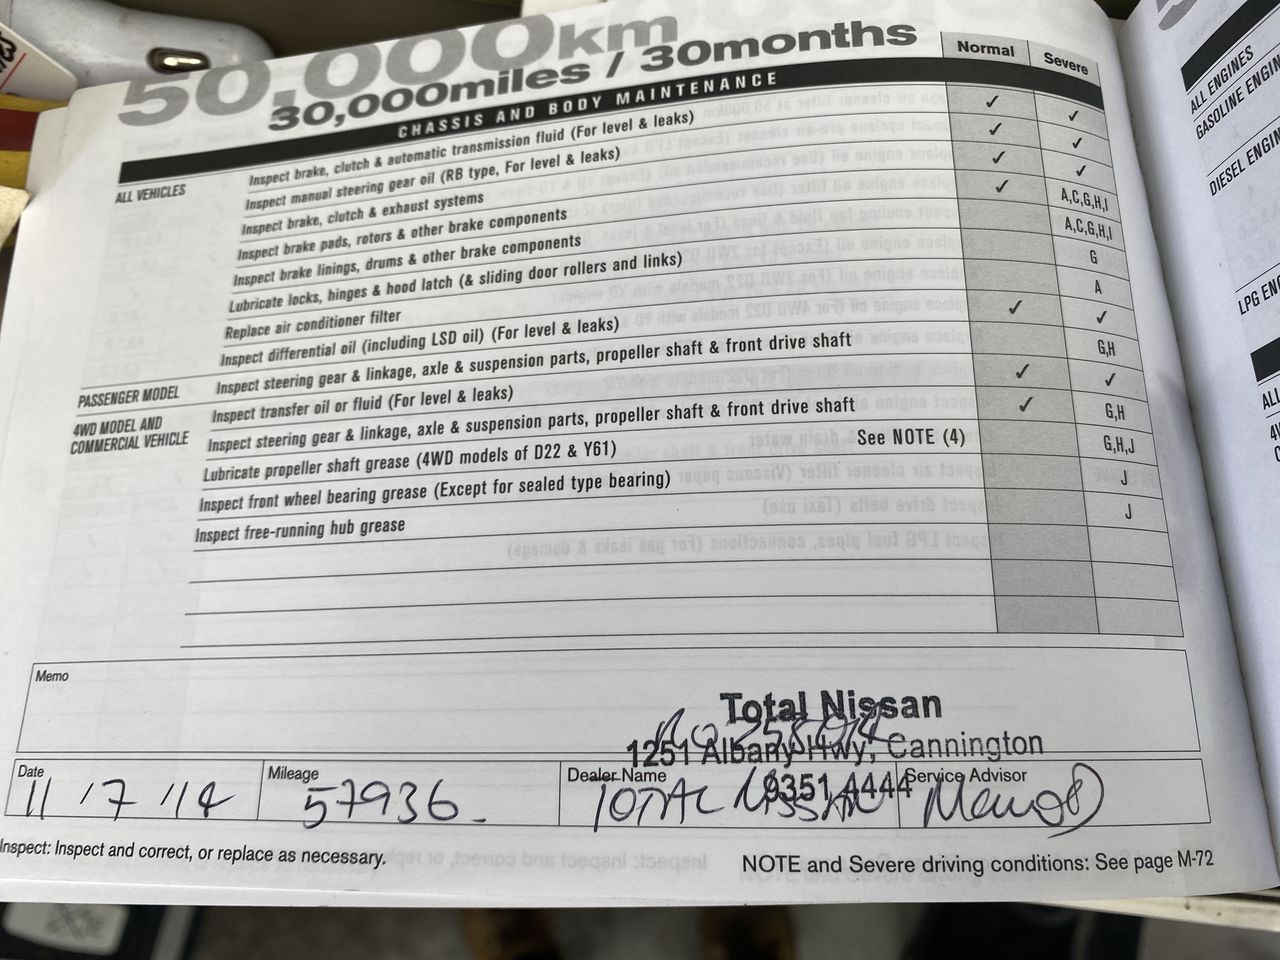 50,000km
30,000miles / 30months
Normal
Severe
CHASSIS AND BODY MAINTENANCE
ALL VEHICLES
Inspect brake, clutch & automatic transmission fluid (For level & leaks) ✓ ✓
Inspect manual steering gear oil (RB type, For level & leaks) ✓ ✓
Inspect brake, clutch & exhaust systems ✓ ✓
Inspect brake pads, rotors & other brake components ✓ A,C,G,H,I
Inspect brake linings, drums & other brake components A,C,G,H,I
Lubricate locks, hinges & hood latch (& sliding door rollers and links) G
Replace air conditioner filter A
Inspect differential oil (including LSD oil) (For level & leaks) ✓ ✓
PASSENGER MODEL
Inspect steering gear & linkage, axle & suspension parts, propeller shaft & front drive shaft G,H
4WD MODEL AND
COMMERCIAL VEHICLE
Inspect transfer oil or fluid (For level & leaks) ✓ ✓
Inspect steering gear & linkage, axle & suspension parts, propeller shaft & front drive shaft ✓ G,H
Lubricate propeller shaft grease (4WD models of D22 & Y61) See NOTE (4) G,H,J
Inspect front wheel bearing grease (Except for sealed type bearing) J
Inspect free-running hub grease J
Memo
Total Nissan
1251 Albany Hwy, Cannington
9351 4444
Date
11/7/14
Mileage
57936
Dealer Name
TOTAL NISSAN
Service Advisor
Inspect: Inspect and correct, or replace as necessary.
NOTE and Severe driving conditions: See page M-72
ALL ENGINES
GASOLINE ENGIN
DIESEL ENGIN
LPG ENG
ALL